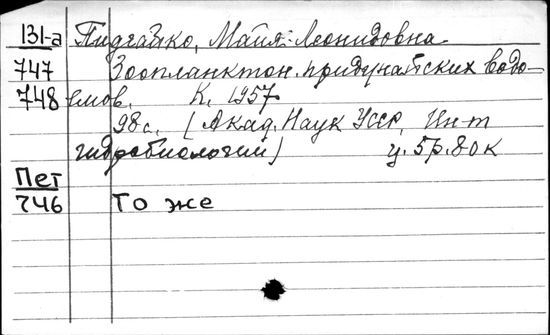 131-а Пидгайко, Майя Леонидовна
747 Зоопланктон придунайских водо-
748 емов. К. 1957
98 с. (Акад. Наук УССР, Ин-т
гидробиологии) ц. 5 р. 80 к
Пет
746 То же